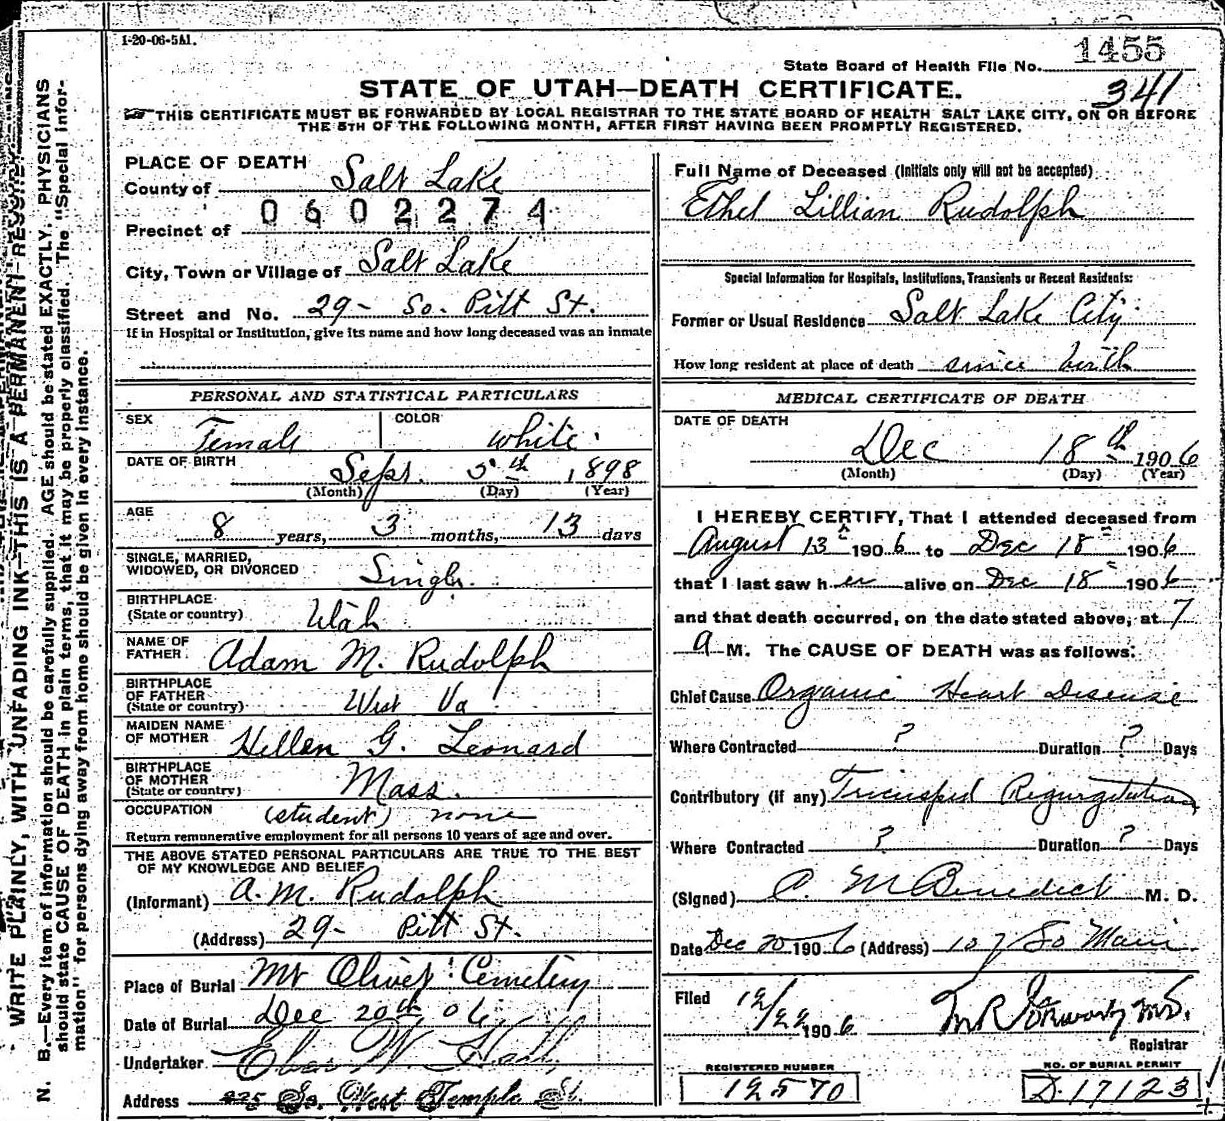 1-20-06-5M.
1455
State Board of Health File No.
341
STATE OF UTAH—DEATH CERTIFICATE.
THIS CERTIFICATE MUST BE FORWARDED BY LOCAL REGISTRAR TO THE STATE BOARD OF HEALTH SALT LAKE CITY, ON OR BEFORE
THE 5TH OF THE FOLLOWING MONTH, AFTER FIRST HAVING BEEN PROMPTLY REGISTERED.
PLACE OF DEATH
County of Salt Lake
0602274
Precinct of
City, Town or Village of Salt Lake
Street and No. 29- So. Pitt St.
If in Hospital or Institution, give its name and how long deceased was an inmate
PERSONAL AND STATISTICAL PARTICULARS
SEX Female COLOR white
DATE OF BIRTH Sept. 5th 1898
(Month) (Day) (Year)
AGE 8 years, 3 months, 13 days
SINGLE, MARRIED,
WIDOWED, OR DIVORCED Single
BIRTHPLACE
(State or country) Utah
NAME OF
FATHER Adam M. Rudolph
BIRTHPLACE
OF FATHER
(State or country) West Va
MAIDEN NAME
OF MOTHER Hellen G. Leonard
BIRTHPLACE
OF MOTHER
(State or country) Mass.
OCCUPATION (student) none
Return remunerative employment for all persons 10 years of age and over.
THE ABOVE STATED PERSONAL PARTICULARS ARE TRUE TO THE BEST
OF MY KNOWLEDGE AND BELIEF
(Informant) A. M. Rudolph
(Address) 29- Pitt St.
Place of Burial Mt Olivet Cemetery
Date of Burial Dec 20th 06
Undertaker Eber W. Hall
Address 225 So. West Temple St.
Full Name of Deceased (Initials only will not be accepted)
Ethel Lillian Rudolph
Special Information for Hospitals, Institutions, Transients or Recent Residents:
Former or Usual Residence Salt Lake City
How long resident at place of death since birth
MEDICAL CERTIFICATE OF DEATH
DATE OF DEATH
Dec 18th 1906
(Month) (Day) (Year)
I HEREBY CERTIFY, That I attended deceased from
August 13th 1906 to Dec 18th 1906
that I last saw her alive on Dec 18th 1906
and that death occurred, on the date stated above, at 7
A M. The CAUSE OF DEATH was as follows:
Chief Cause Organic Heart Disease
Where Contracted ? Duration ? Days
Contributory (if any) Tricuspid Regurgitation
Where Contracted ? Duration ? Days
(Signed) C. M Benedict M. D.
Date Dec 20 1906 (Address) 107 So Main
Filed 12/22 1906
Registrar
REGISTERED NUMBER
12570
NO. OF BURIAL PERMIT
D-17123
WRITE PLAINLY, WITH UNFADING INK—THIS IS A PERMANENT RECORD
N. B.—Every item of information should be carefully supplied. AGE should be stated EXACTLY. PHYSICIANS
should state CAUSE OF DEATH in plain terms, that it may be properly classified. The "Special Infor-
mation" for persons dying away from home should be given in every instance.